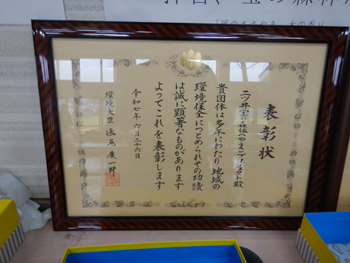 表彰状
二ツ井宝の森林プロジェクト殿
貴団体は多年にわたり地域の
環境保全につとめられその功績
は誠に顕著なものがあります
よってこれを表彰します
令和七年六月二十六日
環境大臣 浅尾慶一郎